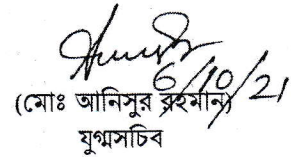 6/10/21
(মোঃ আনিসুর রহমান)
যুগ্মসচিব